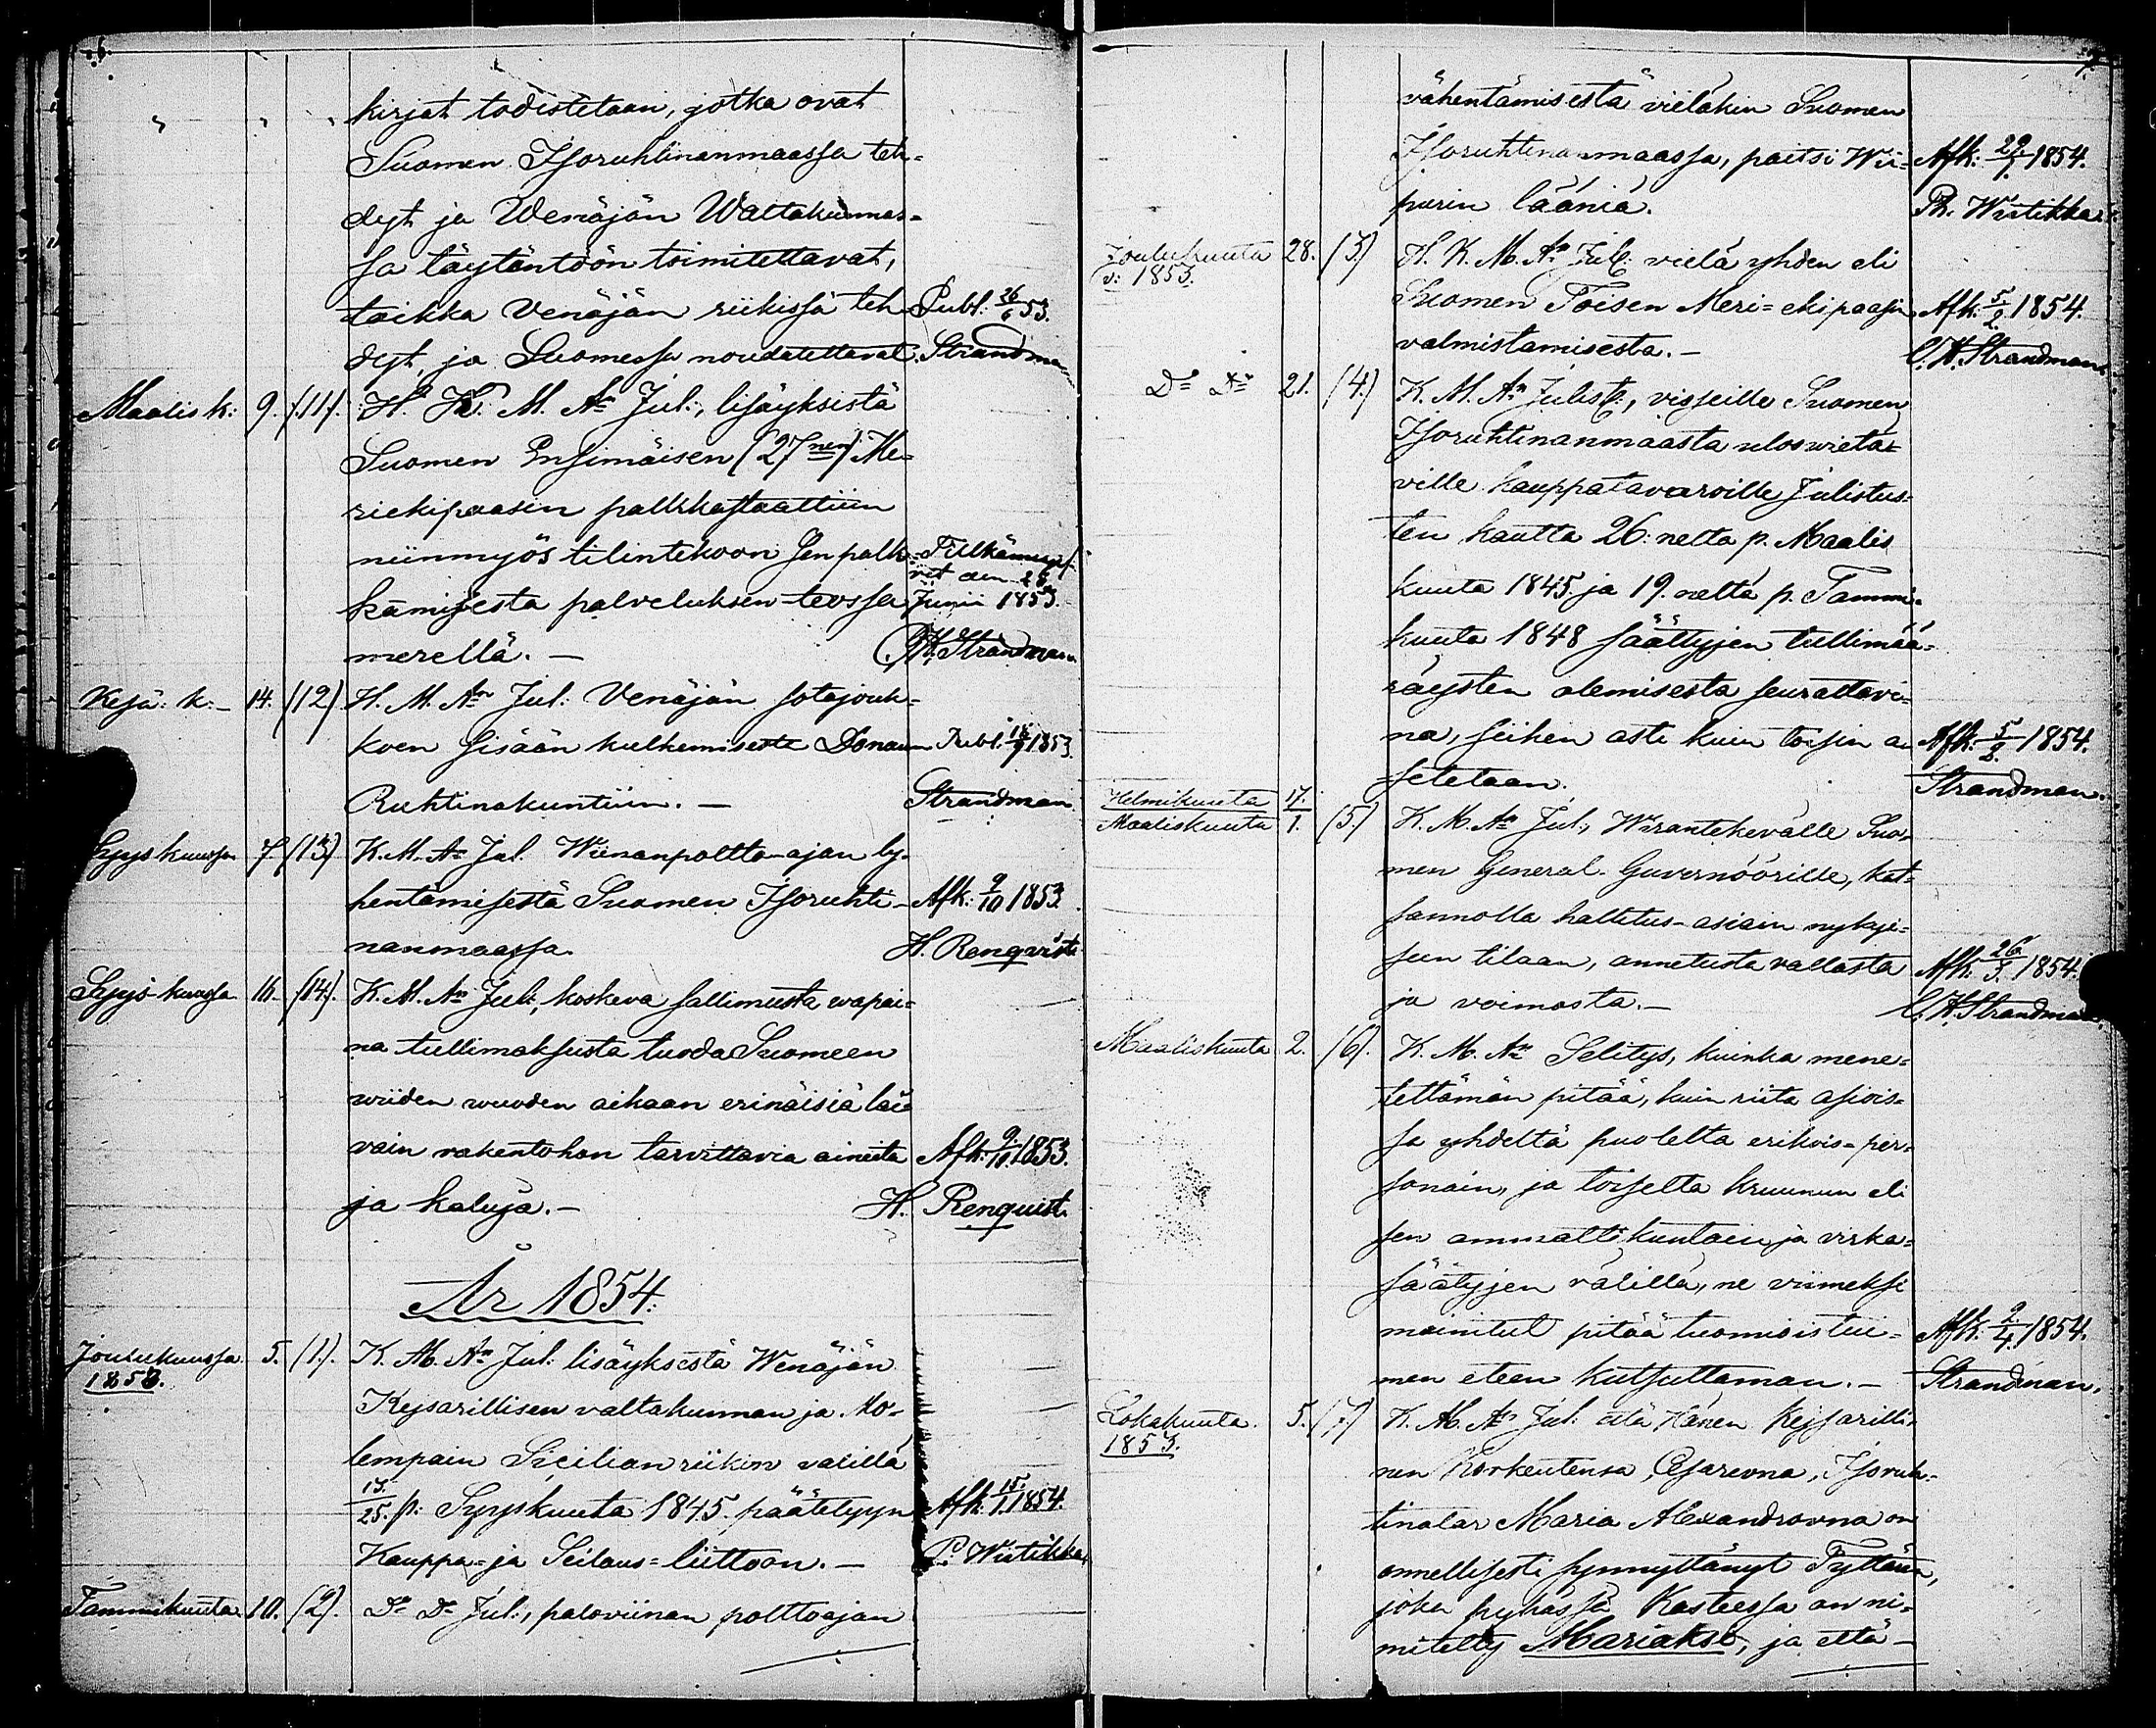 6.
kirjat todistetaan, jotka ovat
Suomen Isoruhtinanmaassa teh-
dyt ja Wenäjän Waltakunnas-
sa täytäntöön toimitettavat,
taikka Venäjän riikissä teh- Publ: 26/6 53.
dyt, ja Suomessa noudatettavat. Strandman
Maalis k: 9. (11). H. K. M. An Jul:, lisäyksistä
Suomen Ensimäisen (27nen) Me-
riekipaasin palkkastaattiin
niinmyös tilintekoon sen palk- Tillkännagif-
vit den 26
kämisesta palveluksen teossa Junii 1853.
merellä. — C.H. Strandman
Kesä: k: — 14. (12) H. M. An Jul: Venäjän sotajouk-
koen sisään kulkemisesta Donaun Publ. 18/9 1853.
Ruhtinakuntiin. — Strandman.
Syyskuussa 7. (13) K. M. An Jul. Wiinanpoltto-ajan ly-
hentämisestä Suomen Isoruhti- Afk: 9/10 1853.
nanmaassa. H. Renqvist
Syys-kuussa 16. (14). K. M. An Jul:, koskeva sallimusta wapai-
na tullimaksusta tuoda Suomeen
wiiden wuoden aikaan erinäisiä lai-
vain rakentohon tarvittavia aineita Afk: 9/10. 1853.
ja kaluja. — H. Renquist.
År 1854:
Joulukuussa 5. (1). K. M. An Jul: lisäyksestä Wenäjän
1853.
Kejsarillisen valtakunnan ja Mo-
lempain Sicilian riikin välillä
13./25. p: Syyskuuta 1845 päätetyyn Afk: 15/1. 1854.
Kauppa- ja Seilaus-liittoon. — P. Wiitikka
Tammikuuta 10. (2). Do Do Jul:, paloviinan polttoajan
7.
vähentämisestä vieläkin Suomen
Isoruhtinanmaassa, paitsi Wii- Afk: 29/1 1854.
purin lääniä. Ph. Wiitikka.
Joulukuuta 28. (3) H. K. M. An Jul: vielä yhden eli
v: 1853.
Suomen Toisen Meri-ekipaasin Afk: 5/2. 1854.
valmistamisesta. — C. H. Strandman.
Do Do 21. (4.) K. M. An Julist:, visseille Suomen
Isoruhtinanmaasta uloswietä-
ville kauppatavaroille Julistus-
ten kautta 26: nelta p. Maalis
kuuta 1845 ja 19. neltä p. Tammi-
kuuta 1848 säättyjen tullimää-
räysten olemisesta seurattavi-
na, siihen asti kuin toisin a- Afk: 5/2. 1854.
setetaan. Strandman.
Helmikuuta 17.
Maaliskuuta 1. (5.) K. M. An Jul:, Wirantekevälle Suo-
men General-Guvernöörille, kat-
sannolla hallitus-asiain nykyi-
seen tilaan, annetusta vallasta Afk: 26/3. 1854.
ja voimasta. — C. H. Strandman.
Maaliskuuta 2. (6). K. M. An Selitys, kuinka mene-
tettämän pitää, kuin riita asiois-
sa yhdeltä puolelta erikois-per-
sonain, ja toiselta kruunun eli
sen ammattikuntain ja virka-
säätyjen välillä, ne viimeksi
mainitut pitää tuomioistui- Afk: 9./4. 1854.
men eteen kutsuttaman. — Strandman.
Lokakuuta 5. (7) K. M. An Jul: että Hänen Kejsarilli-
1853.
nen Korkeutensa, Cesarevna, Isoruh-
tinatar Maria Alexandrovna on
onnellisesti synnyttänyt Tyttären,
joka pyhässä Kasteessa on ni-
mitetty Mariaksi, ja että —